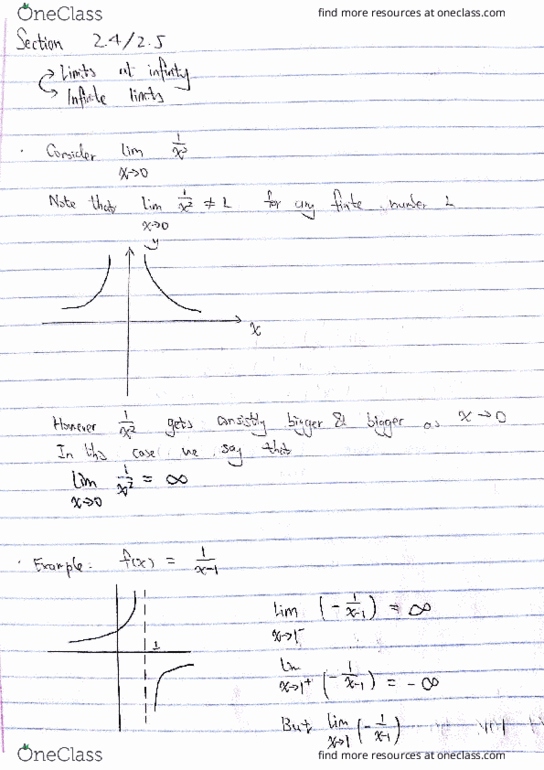 OneClass find more resources at oneclass.com
Section 2.4/2.5
Limits at infinity
Infinite limits
· Consider lim x→0 1/x²
Note that lim x→0 1/x² ≠ L for any finite number L
y
x
However 1/x² gets bigger & bigger as x→0
In this case, we say that
lim x→0 1/x² = ∞
· Example: f(x) = 1/(x-1)
1
lim x→1⁻ (-1/(x-1)) = ∞
lim x→1⁺ (-1/(x-1)) = -∞
But lim x→1 (-1/(x-1))
OneClass find more resources at oneclass.com